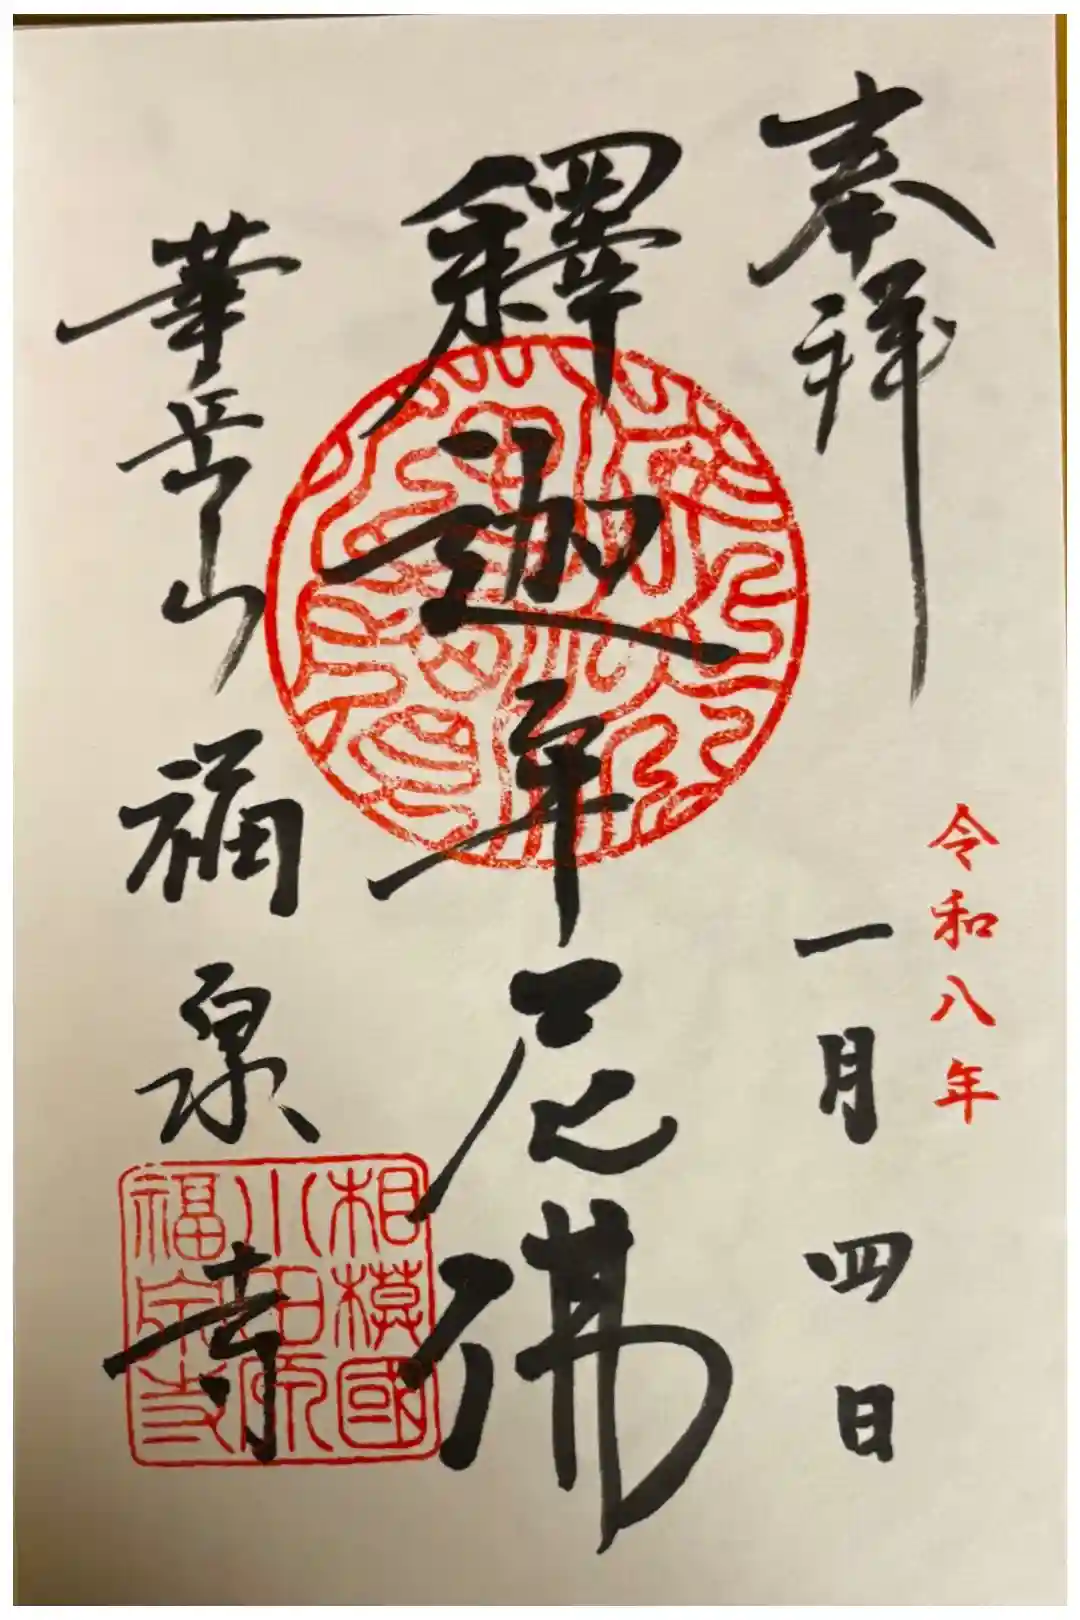 奉拝
令和八年
一月四日
釋迦牟尼佛
華岳山福泉寺
相模國
小田原
福泉寺